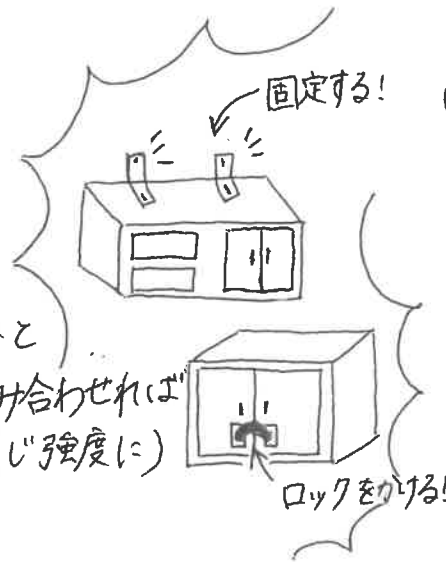 固定する!
と
み合わせれば
じ強度に)
ロックをかける!